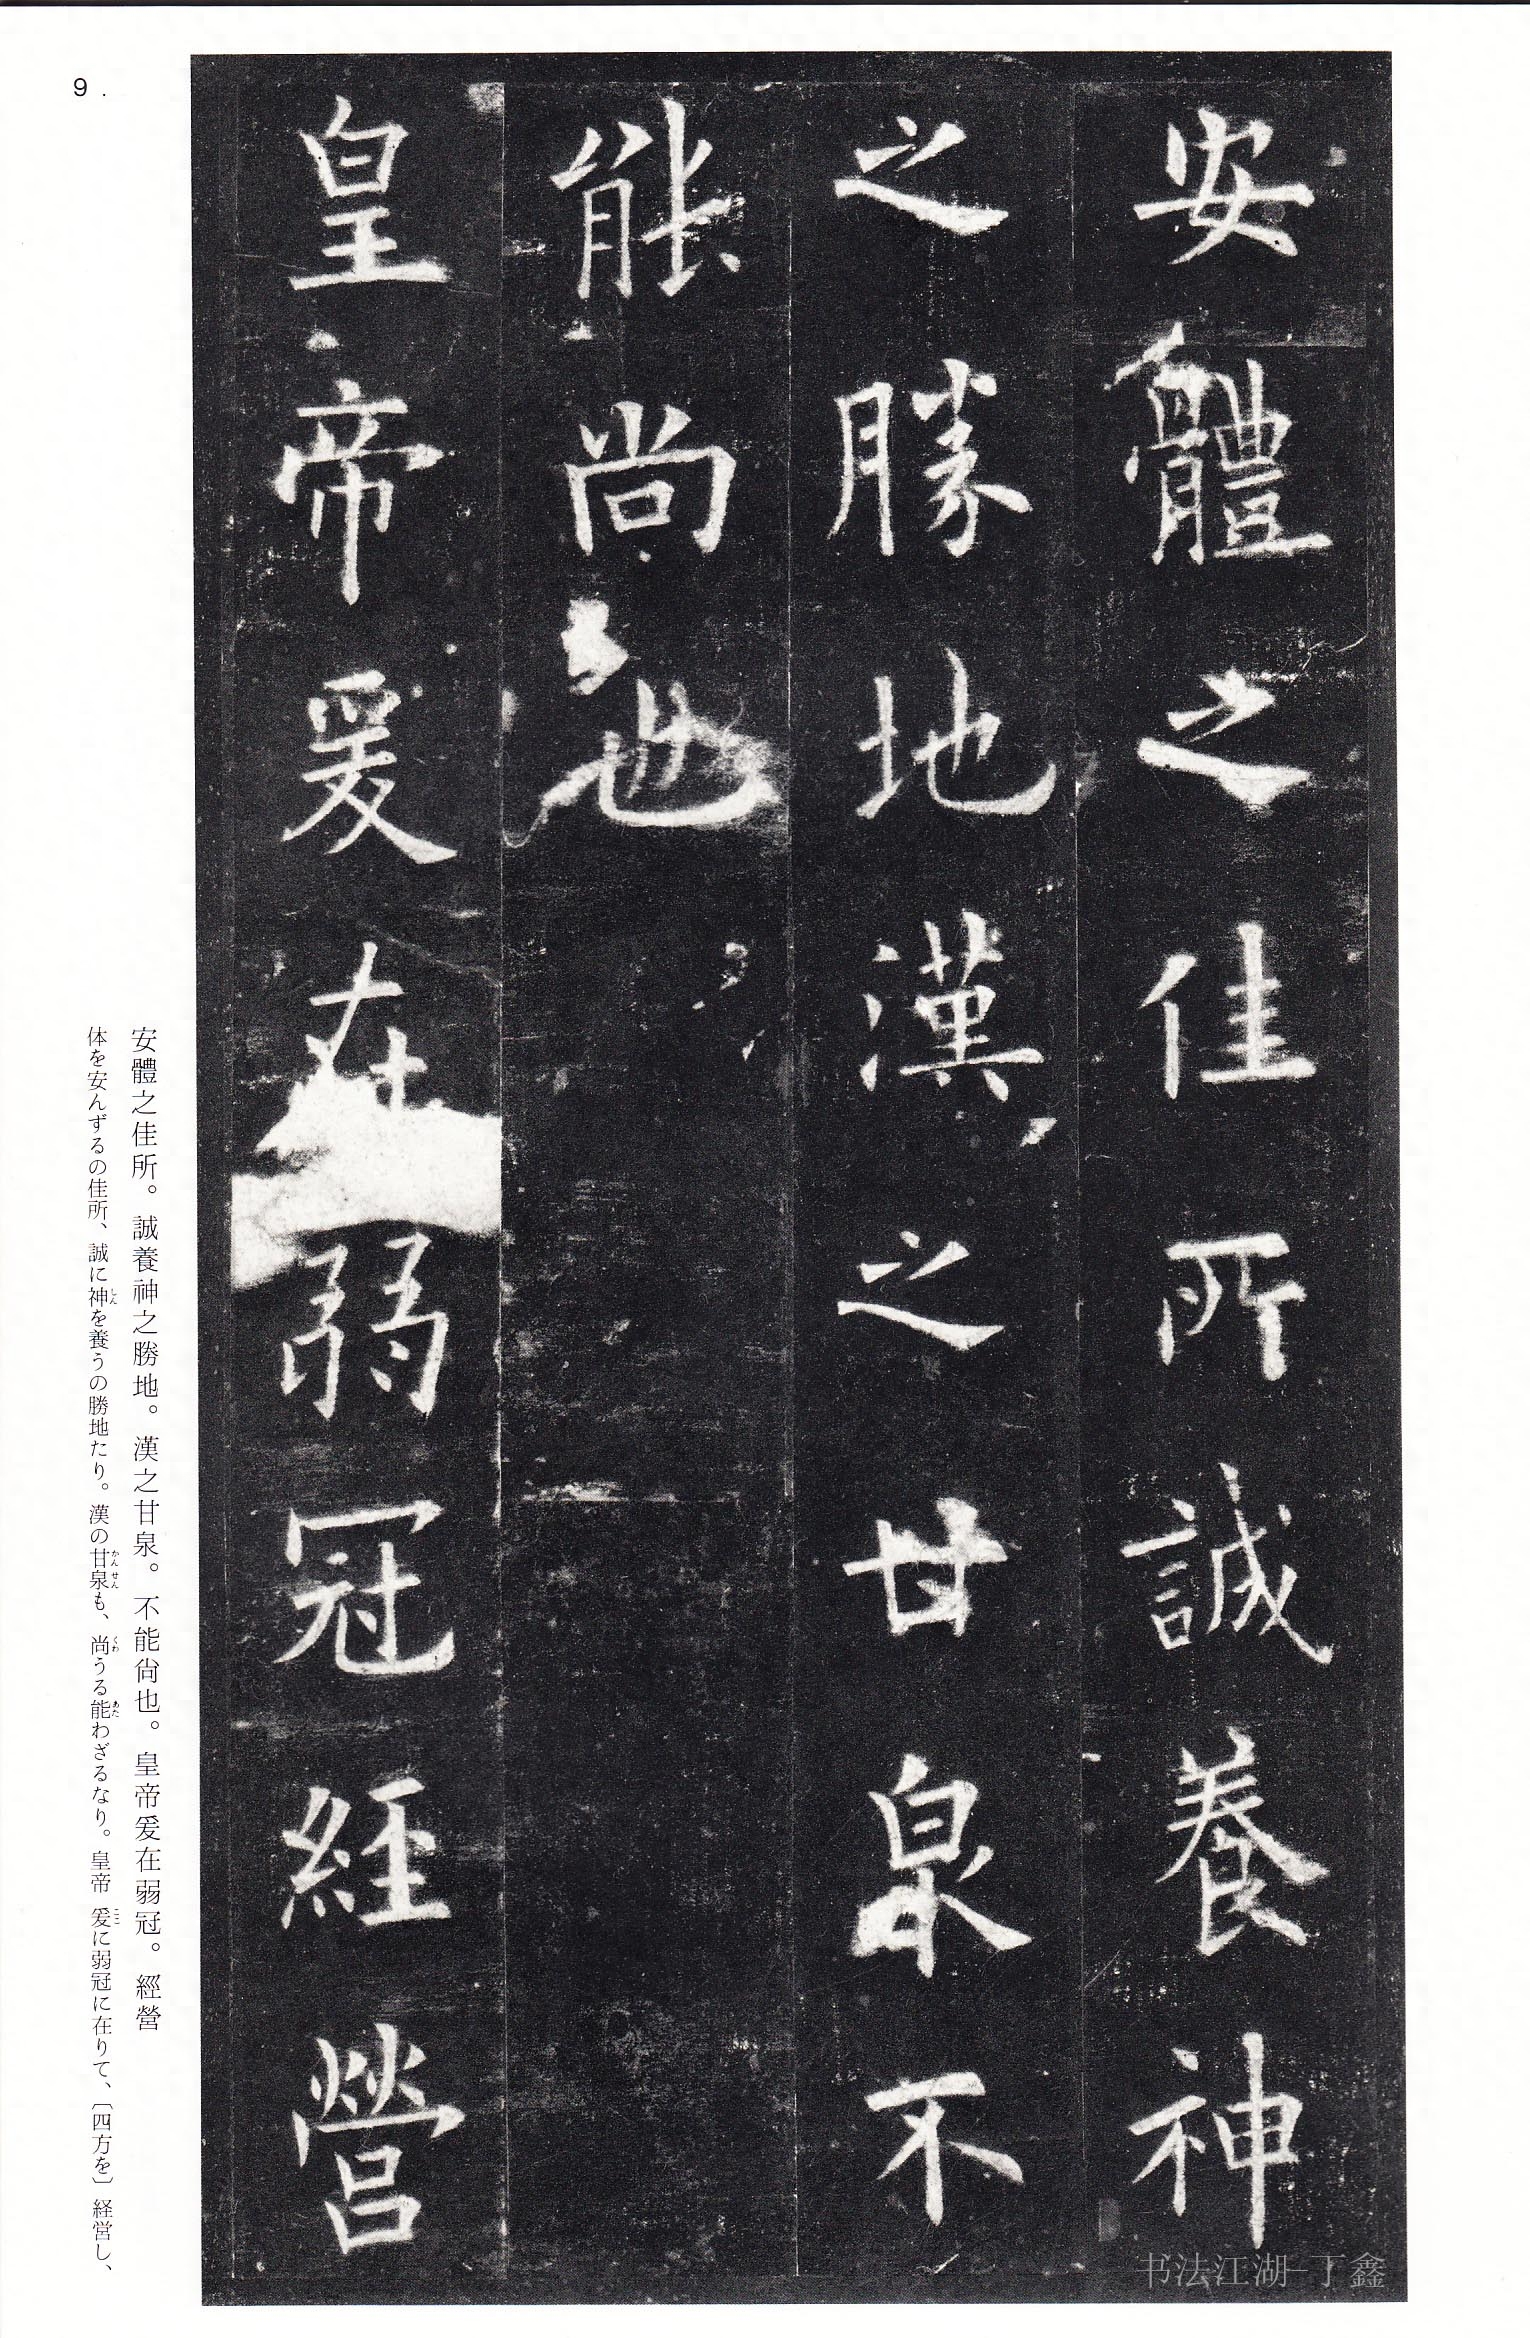 安體之佳所誠養神
之勝地漢之甘泉不
能尚也
皇帝爰在弱冠經營
安體之佳所。誠養神之勝地。漢之甘泉。不能尙也。皇帝爰在弱冠。經營
体を安んずるの佳所、誠に神しんを養うの勝地たり。漢の甘泉かんせんも、尚くわうる能あたわざるなり。皇帝 爰ここに弱冠に在りて、〔四方を〕経営し、
9
书法江湖-丁鑫